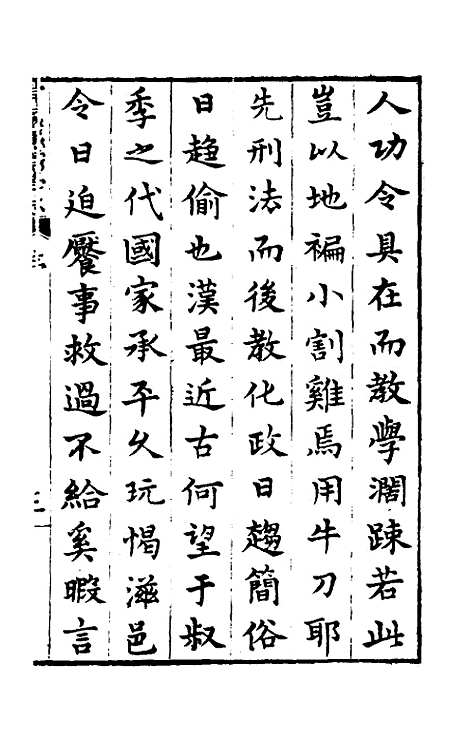 人功令具在而教學濶踈若此
豈以地褊小割雞焉用牛刀耶
先刑法而後教化政日趨簡俗
日趋偷也漢最近古何望于叔
季之代國家承平乆玩愒滋邑
令日迫饜事救過不給奚暇言